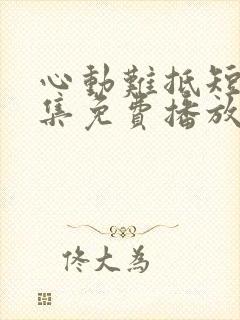 心動難抵短
集免費播放
佟大為